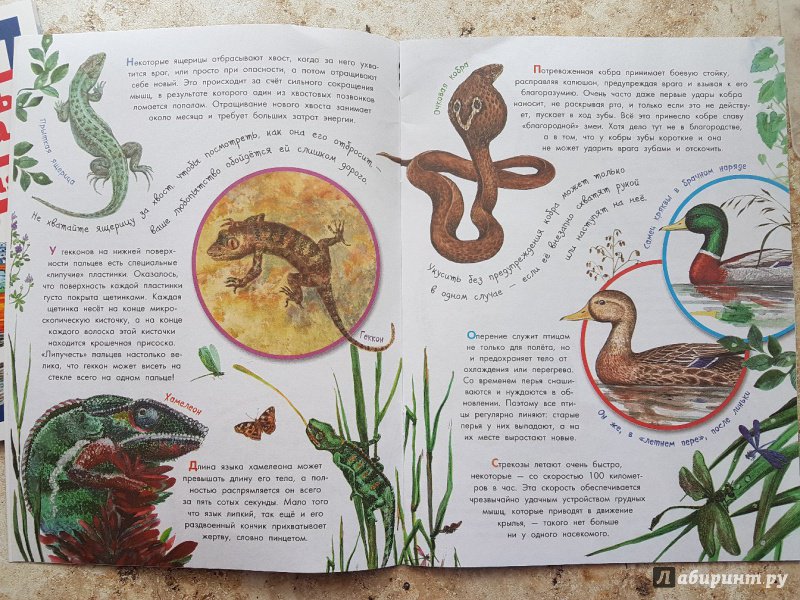 Некоторые ящерицы отбрасывают хвост, когда за него ухва-
тит враг, или просто при опасности, а потом отращивают
себе новый. Это происходит за счёт сильного сокращения
мышц, в результате которого один из хвостовых позвонков
ломается пополам. Отращивание нового хвоста занимает
около месяца и требует больших затрат энергии.
Прыткая ящерица
Не хватайте ящерицу за хвост, чтобы посмотреть, как она его отбросит, –
ваше любопытство обойдётся ей слишком дорого.
У гекконов на нижней поверх-
ности пальцев есть специальные
«липучие» пластинки. Оказалось,
что поверхность каждой пластинки
густо покрыта щетинками. Каждая
щетинка несёт на конце микро-
скопическую кисточку, а на конце
каждого волоска этой кисточки
находится крошечная присоска.
«Липучесть» пальцев настолько ве-
лика, что геккон может висеть на
стекле всего на одном пальце!
Геккон
Хамелеон
Длина языка хамелеона может
превышать длину его тела, а пол-
ностью распрямляется он всего
за пять сотых секунды. Мало того
что язык липкий, так ещё и его
раздвоенный кончик прихватывает
жертву, словно пинцетом.
Очковая кобра
Потревоженная кобра принимает боевую стойку,
расправляя капюшон, предупреждая врага и взывая к его
благоразумию. Очень часто даже первые удары кобра
наносит, не раскрывая рта, и только если это не действу-
ет, пускает в ход зубы. Всё это принесло кобре славу
«благородной» змеи. Хотя дело тут не в благородстве,
а в том, что у кобры зубы короткие и она
не может ударить врага зубами и отскочить.
Укусить без предупреждения кобра может только
в одном случае – если её внезапно схватят рукой
или наступят на неё.
Самец кряквы в брачном наряде
Оперение служит птицам
не только для полёта, но
и предохраняет тело от
охлаждения или перегрева.
Со временем перья снаши-
ваются и нуждаются в об-
новлении. Поэтому все пти-
цы регулярно линяют: старые
перья у них выпадают, а на
их месте вырастают новые.
Он же, в «летнем пере», после линьки
Стрекозы летают очень быстро,
некоторые – со скоростью 100 километ-
ров в час. Эта скорость обеспечивается
чрезвычайно удачным устройством грудных
мышц, которые приводят в движение
крылья, – такого нет больше
ни у одного насекомого.
Лабиринт.ру